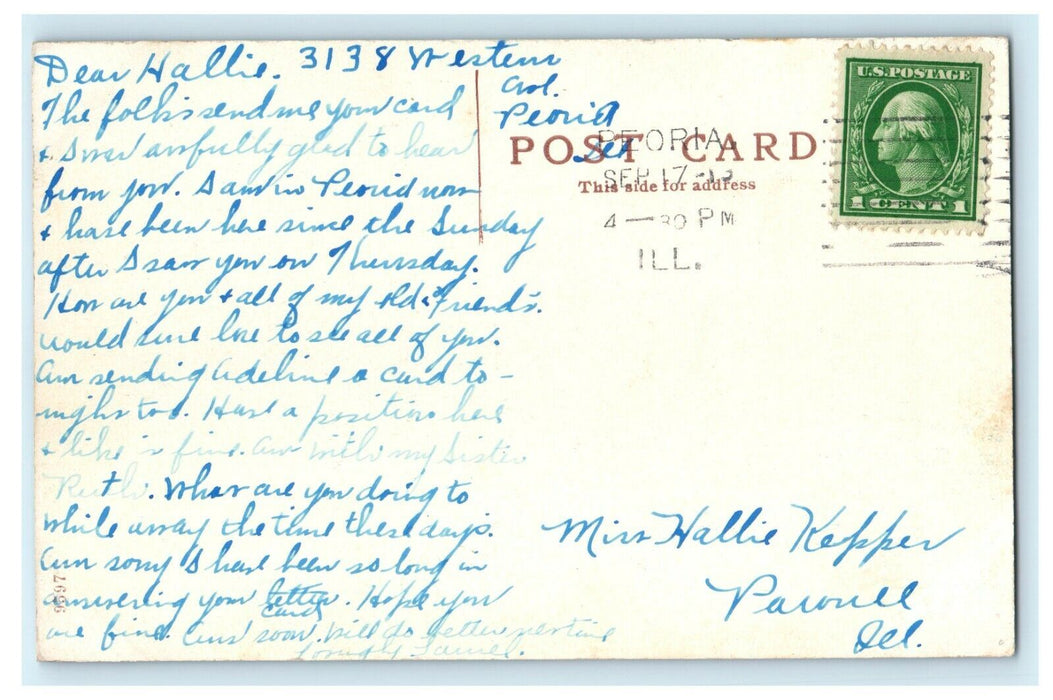 Dear Hallie. 3138 Western
Ave.
Peoria
Ill.
The folks send me your card
& I was awfully glad to hear
from you. I am in Peoria now
& have been here since the Sunday
after I saw you on Thursday.
How are you & all of my old friends.
Would sure love to see all of you.
Am sending Adeline a card to-
night too. Have a position here
& like it fine. Am with my Sister
Ruth. What are you doing to
while away the time these days.
Am sorry I have been so long in
answering your letter card. Hope you
are fine. Ans' soon. Will do better next time
Lovingly
9597
POST CARD
This side for address
PEORIA,
SEP 17
4 — 30 PM
ILL.
U.S. POSTAGE
1 CENT 1
Miss Hallie Kepper
Pawnee
Ill.